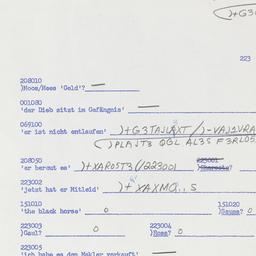 )+G3
223
208010
)Moos/Mees 'Geld'? —
001080
'der Dieb sitzt im Gefängnis' —
069100
'er ist nicht entlaufen' )+G3TAJLAXT /)-VAJ1VRA
()PLAJT3 QGL AL3S F3RLOS
208050 223001
'er bereut es' )+XAROST3(/223001 )Charote?
223002
'jetzt hat er Mitleid' )+XAXMO,, S
151010 151020
'the black horse' 0 )Sauma? 0
223003 223004
)Gaul? 0 )Ross? 0
223005
'ich habe es dem Makler verkauft'